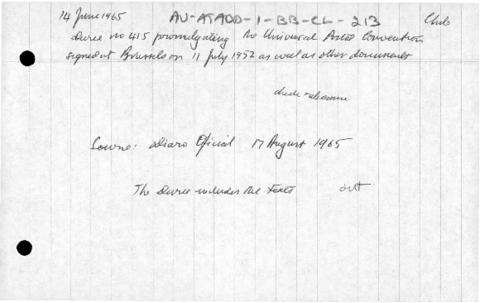 14 June 1965 AU-ATADD-1-BB-CL-213 Chile
decree no 415 promulgating the Universal Postal Convention
signed at Brussels on 11 July 1952 as well as other documents
Source: Diario Oficial 17 August 1965
The decree includes the texts out